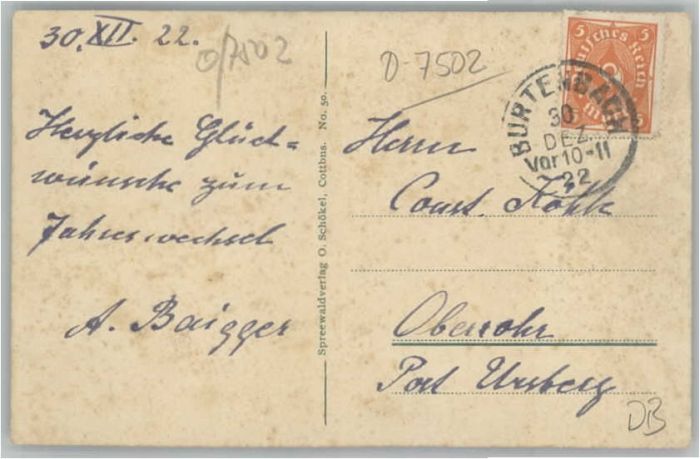 30. XII. 22.
0/7502
Herzliche Glück-
wünsche zum
Jahreswechsel
A. Baigger
Spreewaldverlag O. Schökel, Cottbus. No. 50.
D-7502
5 5
Deutsches Reich
BURTENBACH
30
DEZ.
Vor 10-11
22
Herrn
Const.
Oberrohr
Post Ursberg
DB